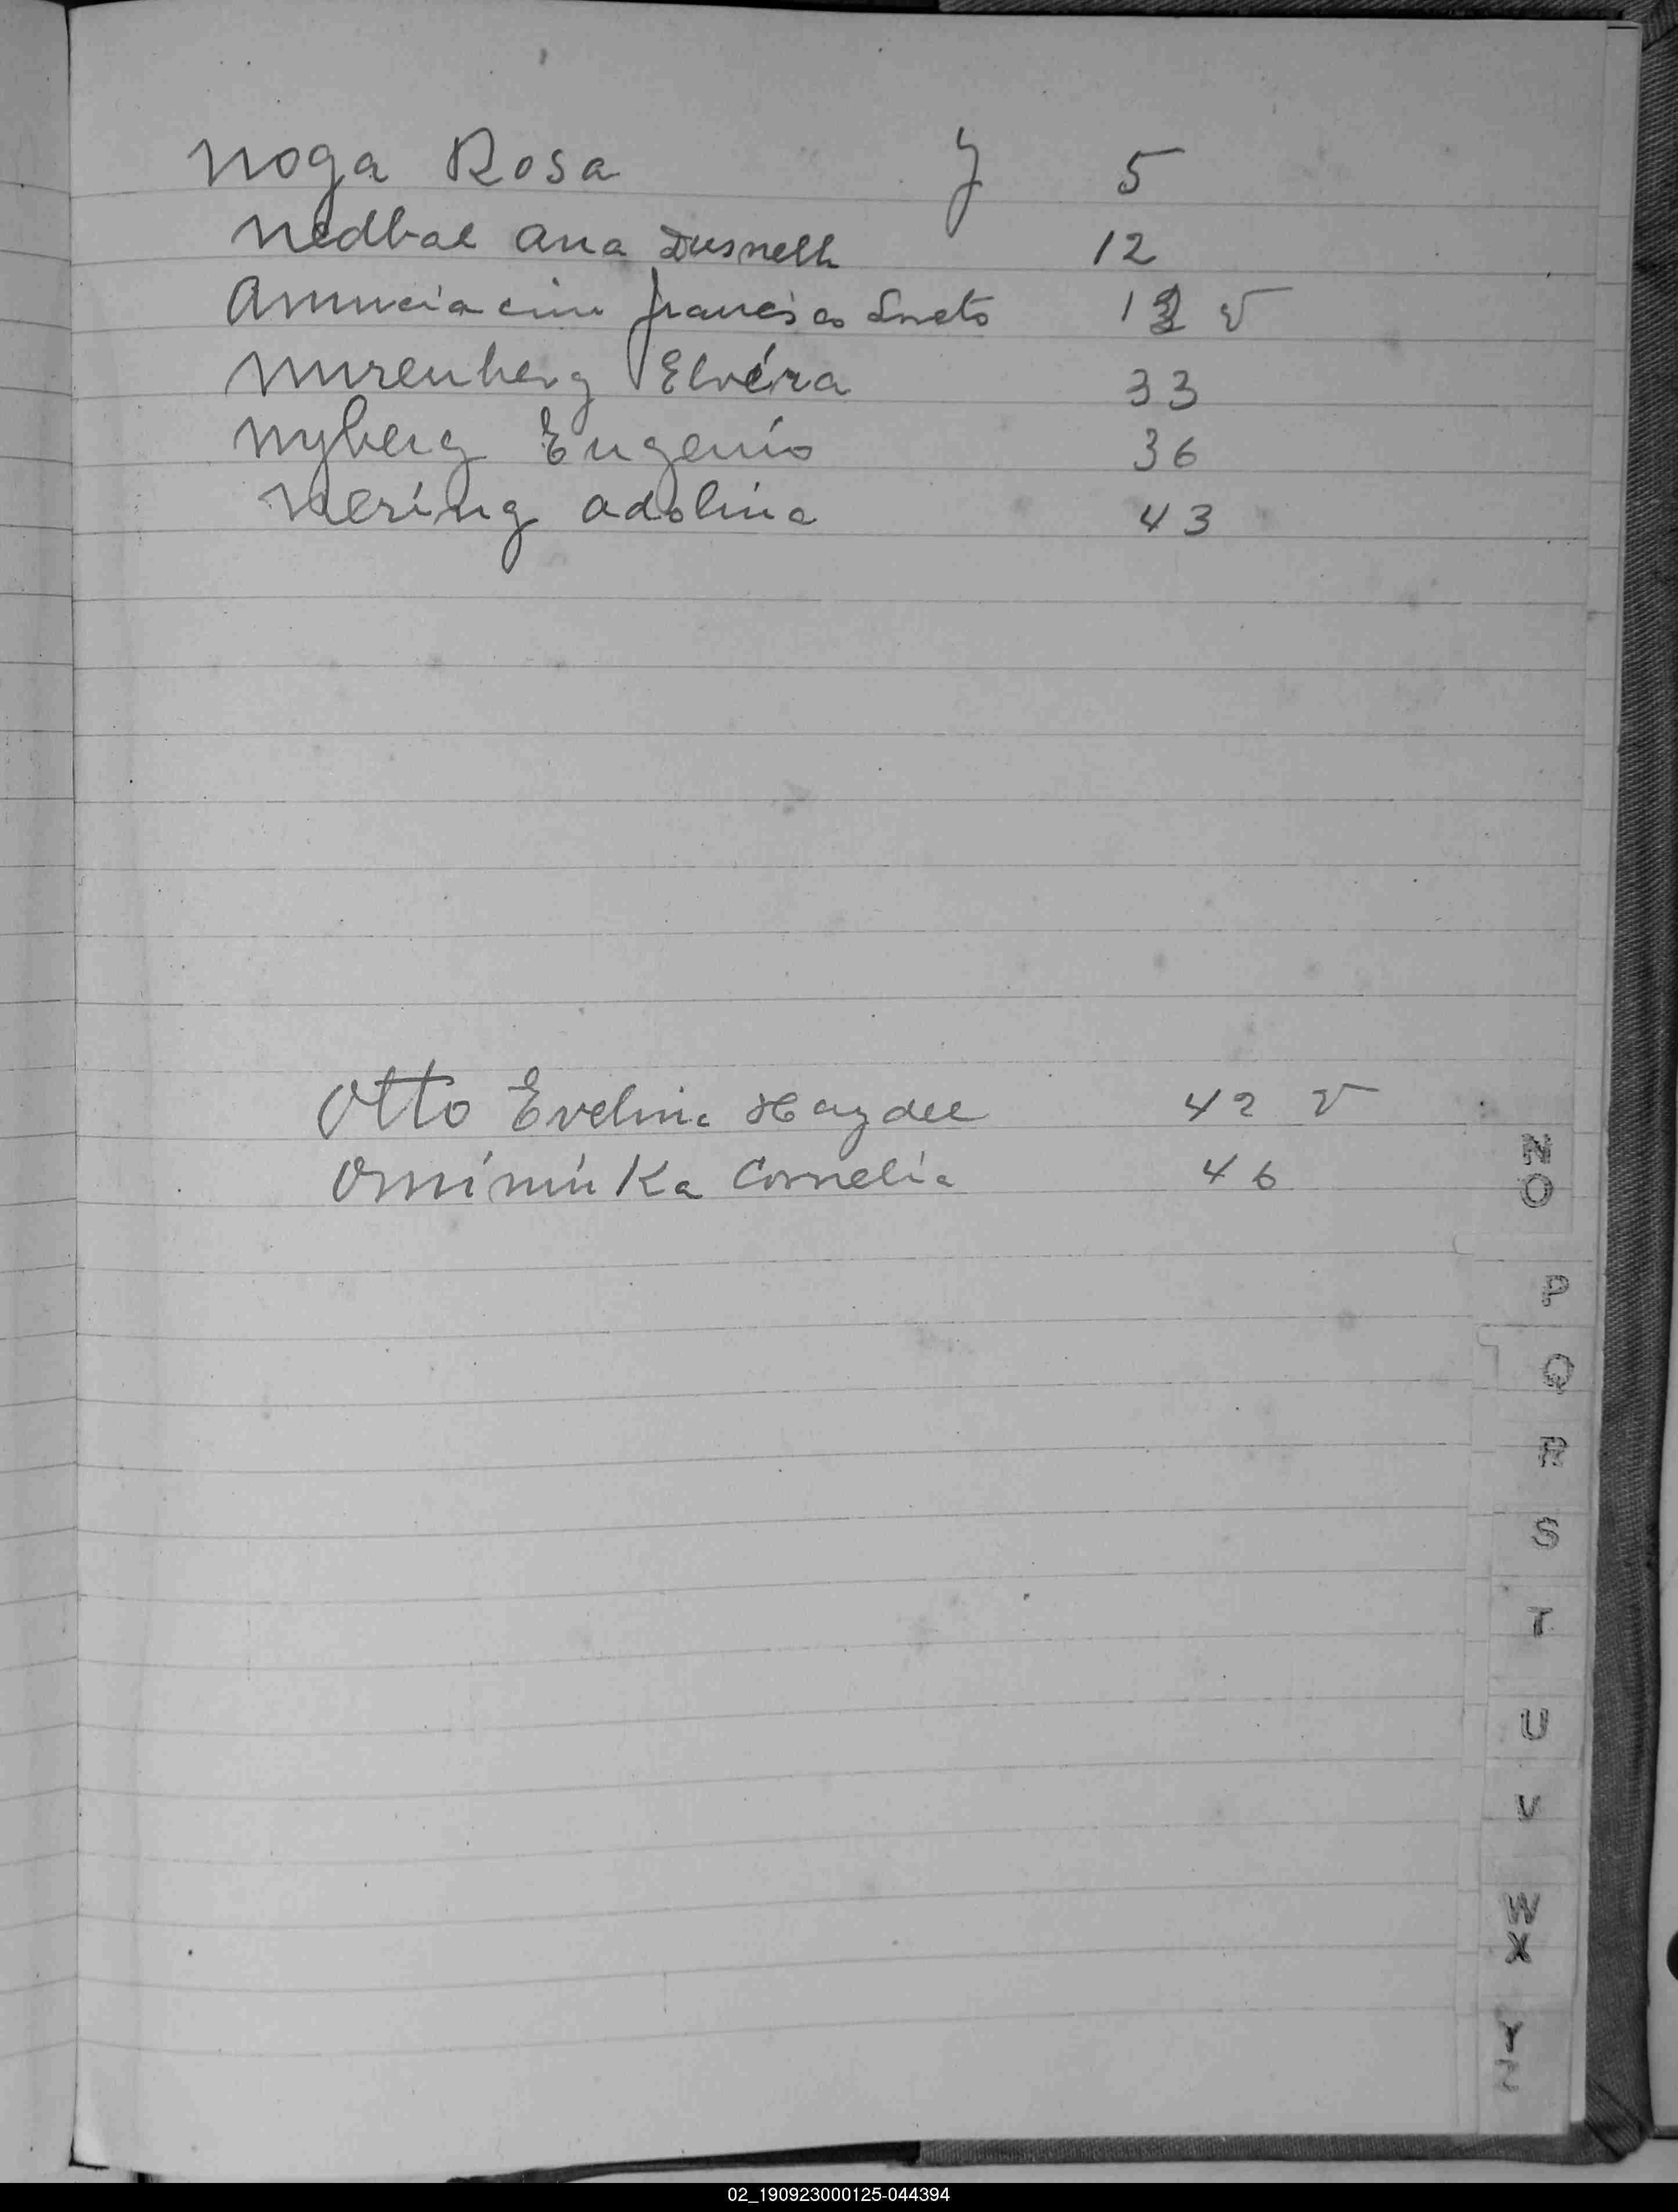 Noga Rosa f 5
Nedbal Ana Dusnelh 12
Anunciacim Francisco Lneto 13 v
Nurenberg Elvira 33
Nyberg Eugenio 36
Nering Adolina 43
Otto Evelina Haydee 42 v
Ominiuka Cornelia 46
N
O
P
Q
R
S
T
U
V
W
X
Y
Z
02_190923000125-044394